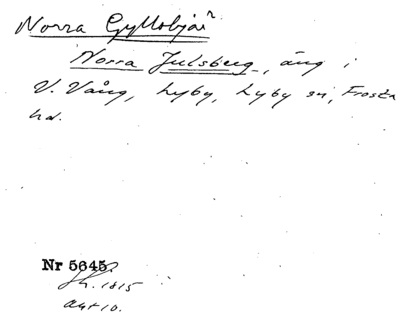 Norra Gyllsbjär
Norra Julsberg, äng i
V. Vång, Lyby, Lyby sn, Frosta
hd.
Nr 5645.
Sk. 1815
akt 10.